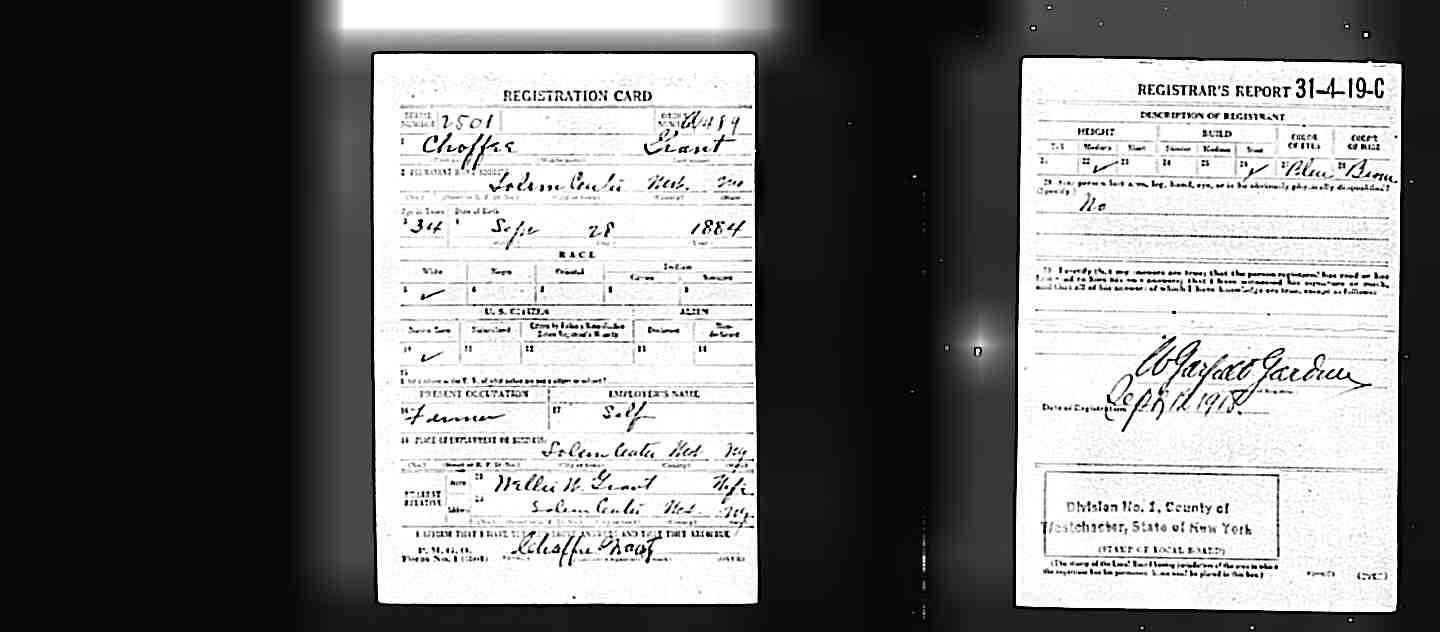 REGISTRATION CARD
SERIAL NUMBER 2501 ORDER NUMBER A489
1 Choffee Grant
(First name) (Middle name) (Last name)
2 PERMANENT HOME ADDRESS:
Solem Center West. Ny
(No.) (Street or R. F. D. No.) (City or town) (County) (State)
Age in Years Date of Birth
3 34 4 Sept 28 1884
RACE
White Negro Oriental Indian
Citizen Noncitizen
5 ✓ 6 7 8 9
U. S. CITIZEN ALIEN
Native Born Naturalized Citizen by Father's Naturalization Before Registrant's Majority Declarant Non-declarant
10 ✓ 11 12 13 14
15
If not a citizen of the U. S., of what nation are you a citizen or subject?
PRESENT OCCUPATION EMPLOYER'S NAME
16 Farmer 17 Self
18 PLACE OF EMPLOYMENT OR BUSINESS:
Solem Center West Ny
(No.) (Street or R. F. D. No.) (City or town) (County) (State)
NEAREST RELATIVE
Name 19 Nellie W. Grant Wife
Address 20 Solem Center West. Ny
(No.) (Street or R. F. D. No.) (City or town) (County) (State)
I AFFIRM THAT I HAVE VERIFIED ABOVE ANSWERS AND THAT THEY ARE TRUE
P. M. G. O.
Form No. 1 (Red) Choffee Grant (OVER)
REGISTRAR'S REPORT 31-4-19-C
DESCRIPTION OF REGISTRANT
HEIGHT BUILD COLOR OF EYES COLOR OF HAIR
Tall Medium Short Slender Medium Stout
21 22 ✓ 23 24 25 26 ✓ 27 Blue 28 Brown
29 Has person lost arm, leg, hand, eye, or is he obviously physically disqualified?
(Specify.)
No
30 I certify that my answers are true; that the person registered has read or has
had read to him his own answers; that I have witnessed his signature or mark,
and that all of his answers of which I have knowledge are true, except as follows:
W Garfield Gardner
Date of Registration Sept 12 1918
Division No. 1, County of
Westchester, State of New York
(STAMP OF LOCAL BOARD)
(The stamp of the Local Board having jurisdiction of the area in which
the registrant has his permanent home shall be placed in this box.)
(OVER)